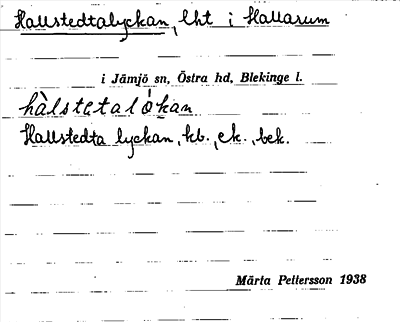 Hallstedtalyckan, lht i Hallarum
i Jämjö sn, Östra hd, Blekinge l.
hàlstetaló̀kan
Hallstedta lyckan, kb., ek., bek.
Märta Pettersson 1938